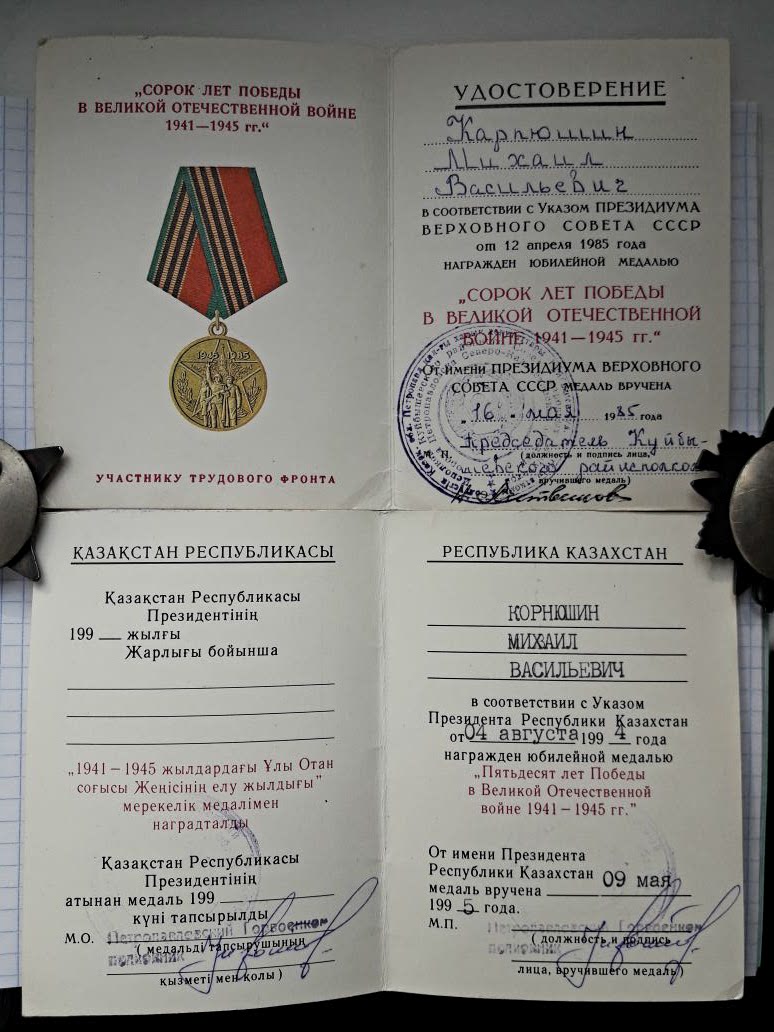 „СОРОК ЛЕТ ПОБЕДЫ
В ВЕЛИКОЙ ОТЕЧЕСТВЕННОЙ ВОЙНЕ
1941—1945 гг.“
1945 1985
УЧАСТНИКУ ТРУДОВОГО ФРОНТА
УДОСТОВЕРЕНИЕ
Карпюшин
Михаил
Васильевич
В СООТВЕТСТВИИ С УКАЗОМ ПРЕЗИДИУМА
ВЕРХОВНОГО СОВЕТА СССР
от 12 апреля 1985 года
НАГРАЖДЕН ЮБИЛЕЙНОЙ МЕДАЛЬЮ
„СОРОК ЛЕТ ПОБЕДЫ
В ВЕЛИКОЙ ОТЕЧЕСТВЕННОЙ
ВОЙНЕ 1941—1945 гг.“
ОТ ИМЕНИ ПРЕЗИДИУМА ВЕРХОВНОГО
СОВЕТА СССР МЕДАЛЬ ВРУЧЕНА
„16“ мая 1985 года
Председатель Куйбы-
(должность и подпись лица,
шевского райисполкома
вручившего медаль)
ҚАЗАҚСТАН РЕСПУБЛИКАСЫ
Қазақстан Республикасы
Президентінің
199 __ жылғы
Жарлығы бойынша
„1941 – 1945 жылдардағы Ұлы Отан
соғысы Жеңісінің елу жылдығы”
мерекелік медалімен
наградталды
Қазақстан Республикасы
Президентінің
атынан медаль 199 ________
күні тапсырылды
М.О. Петропавловский Горвоенком
( медальді тапсырушының
полковник
қызметі мен қолы )
РЕСПУБЛИКА КАЗАХСТАН
КОРНЮШИН
МИХАИЛ
ВАСИЛЬЕВИЧ
в соответствии с Указом
Президента Республики Казахстан
от 04 августа 199 4 года
награжден юбилейной медалью
„Пятьдесят лет Победы
в Великой Отечественной
войне 1941 – 1945 гг.”
От имени Президента
Республики Казахстан
медаль вручена 09 мая
199 5 года.
М.П. Петропавловский Горвоенком
( должность и подпись
полковник
лица, вручившего медаль)